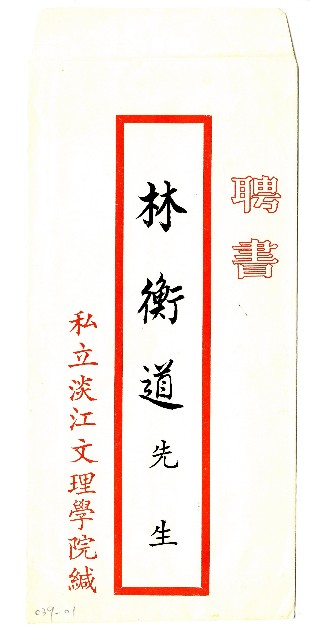 聘書
林衡道先生
私立淡江文理學院緘
c39-01